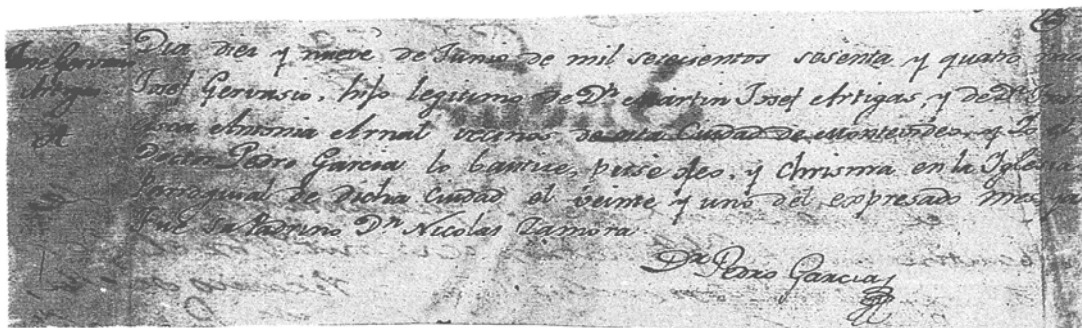 Jose Gervasio
Artigas
Dia diez y nueve de Junio de mil setecientos sesenta y quatro nacio
Josef Gervasio, hijo legitimo de Dn Martin Josef Artigas, y de Da Fran
cisca Antonia Arnal vecinos de esta Ciudad de Montevideo: y Yo el
Doctor Pedro Garcia lo bautice, puse oleo, y Chrisma en la Iglesia
Parroquial de dicha Ciudad el veinte y uno del expresado mes, y año
Fue su Padrino Dn Nicolas Zamora.
Dr Pedro Garcia